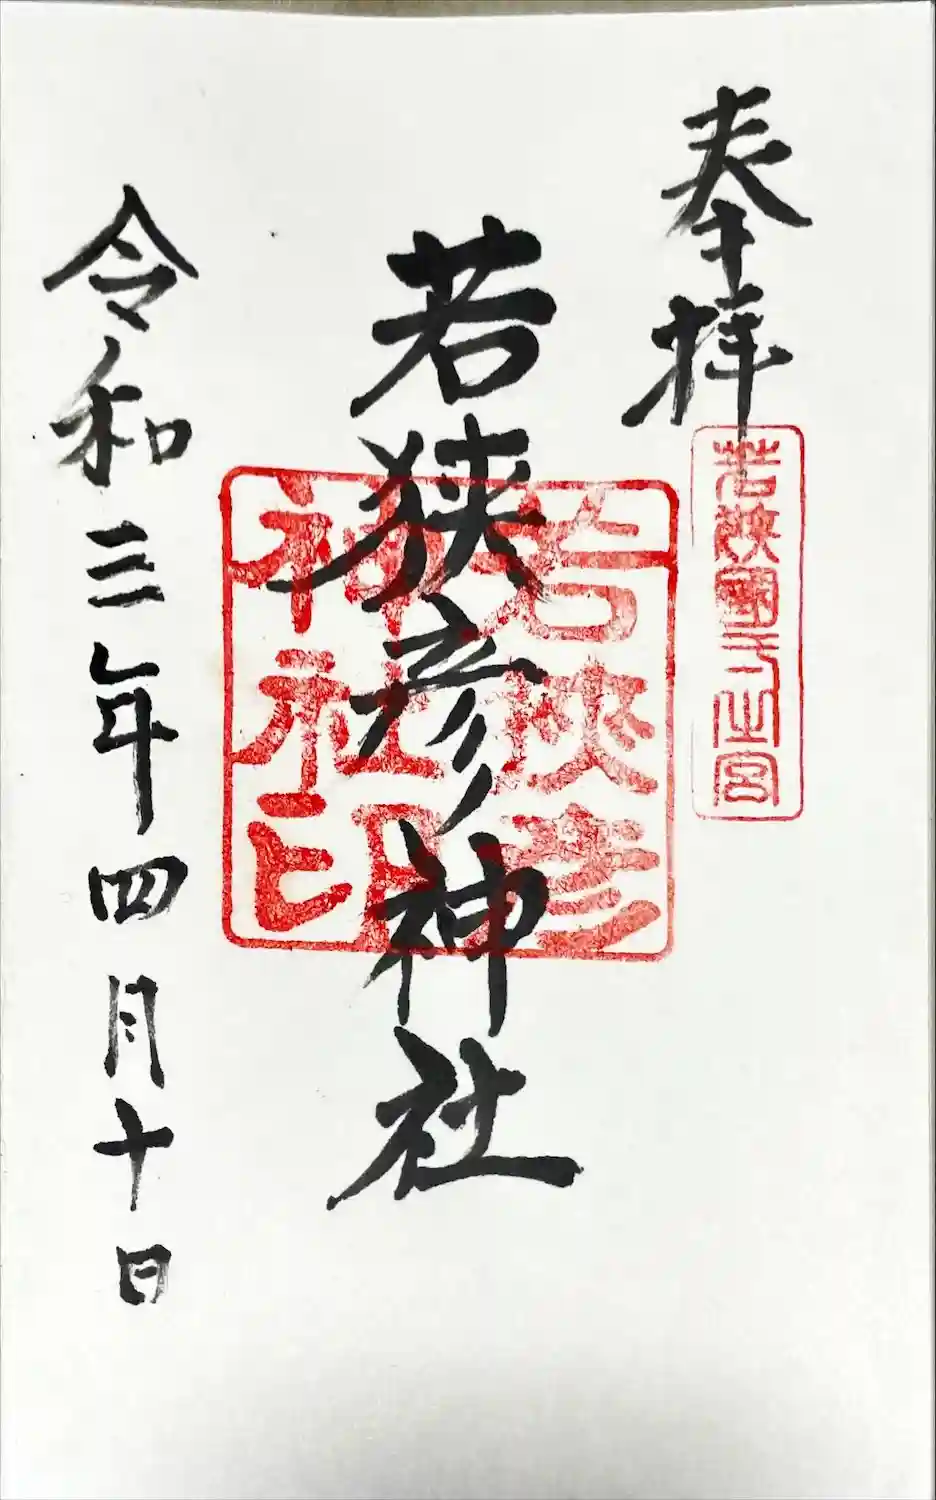 奉拝
若狭國一之宮
若狭彦神社
若狭彦神社印
令和三年四月十日